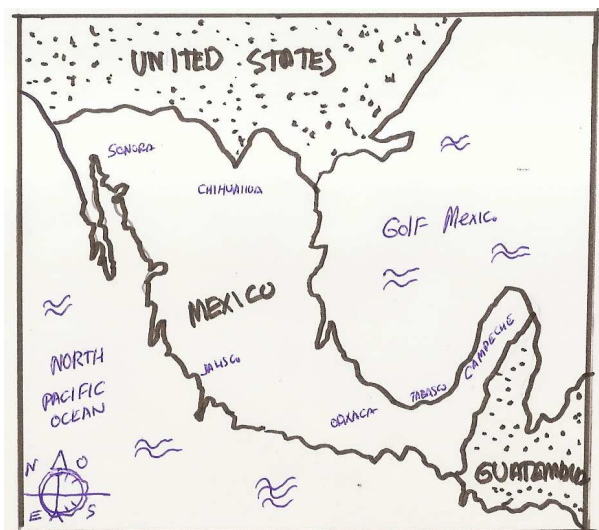 UNITED STATES
SONORA
CHIHUAHUA
Golf Mexico
MEXICO
CAMPECHE
NORTH
PACIFIC
OCEAN
JALISCO
TABASCO
OAXACA
GUATEMALA
N O
E S